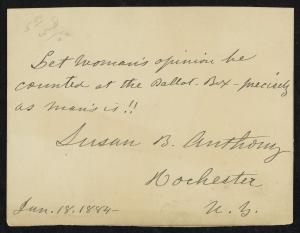 Let woman's opinion be
counted at the Ballot-Box - precisely
as man's is!!
Susan B. Anthony
Rochester
N. Y.
Jan. 18. 1884-